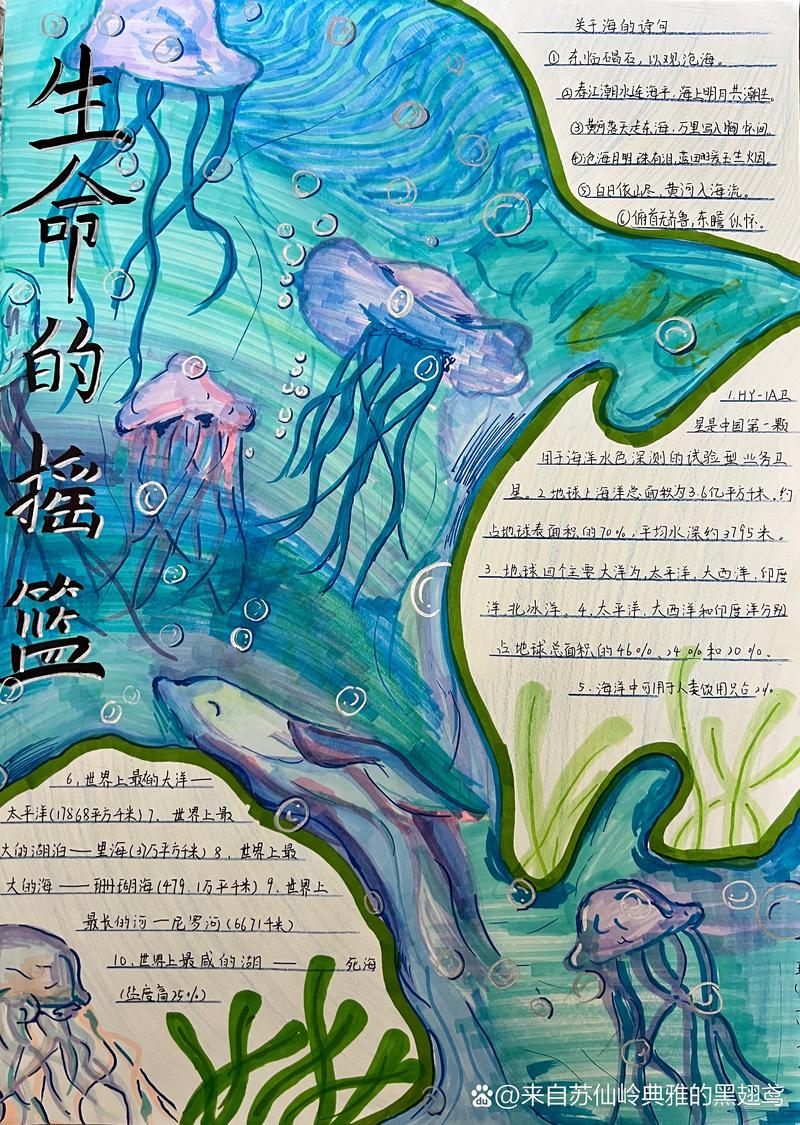 生命的摇篮
关于海的诗句
①东临碣石，以观沧海。
②春江潮水连海平，海上明月共潮生。
③黄河落天走东海，万里写入胸怀间。
④沧海月明珠有泪，蓝田日暖玉生烟。
⑤白日依山尽，黄河入海流。
⑥俯首无齐鲁，东瞻似怀。
1.HY-1A卫
星是中国第一颗
用于海洋水色深测的试验型业务卫
星。2.地球上海洋总面积为3.6亿平方千米，约
占地球表面积的70%，平均水深约3795米。
3.地球四个主要大洋为太平洋，大西洋，印度
洋，北冰洋。4.太平洋，大西洋和印度洋分别
占地球总面积的46%，24%和20%。
5.海洋中可用于人类饮用只占2%
6.世界上最的大洋——
太平洋(17868平方千米)7、世界上最
大的湖泊——里海(37万平方千米)8.世界上最
大的海——珊瑚海(479.1万平千米)9.世界上
最长的河—尼罗河(6671千米)
10.世界上最咸的湖——死海
(盐度高25%)
du @来自苏仙岭典雅的黑翅鸢